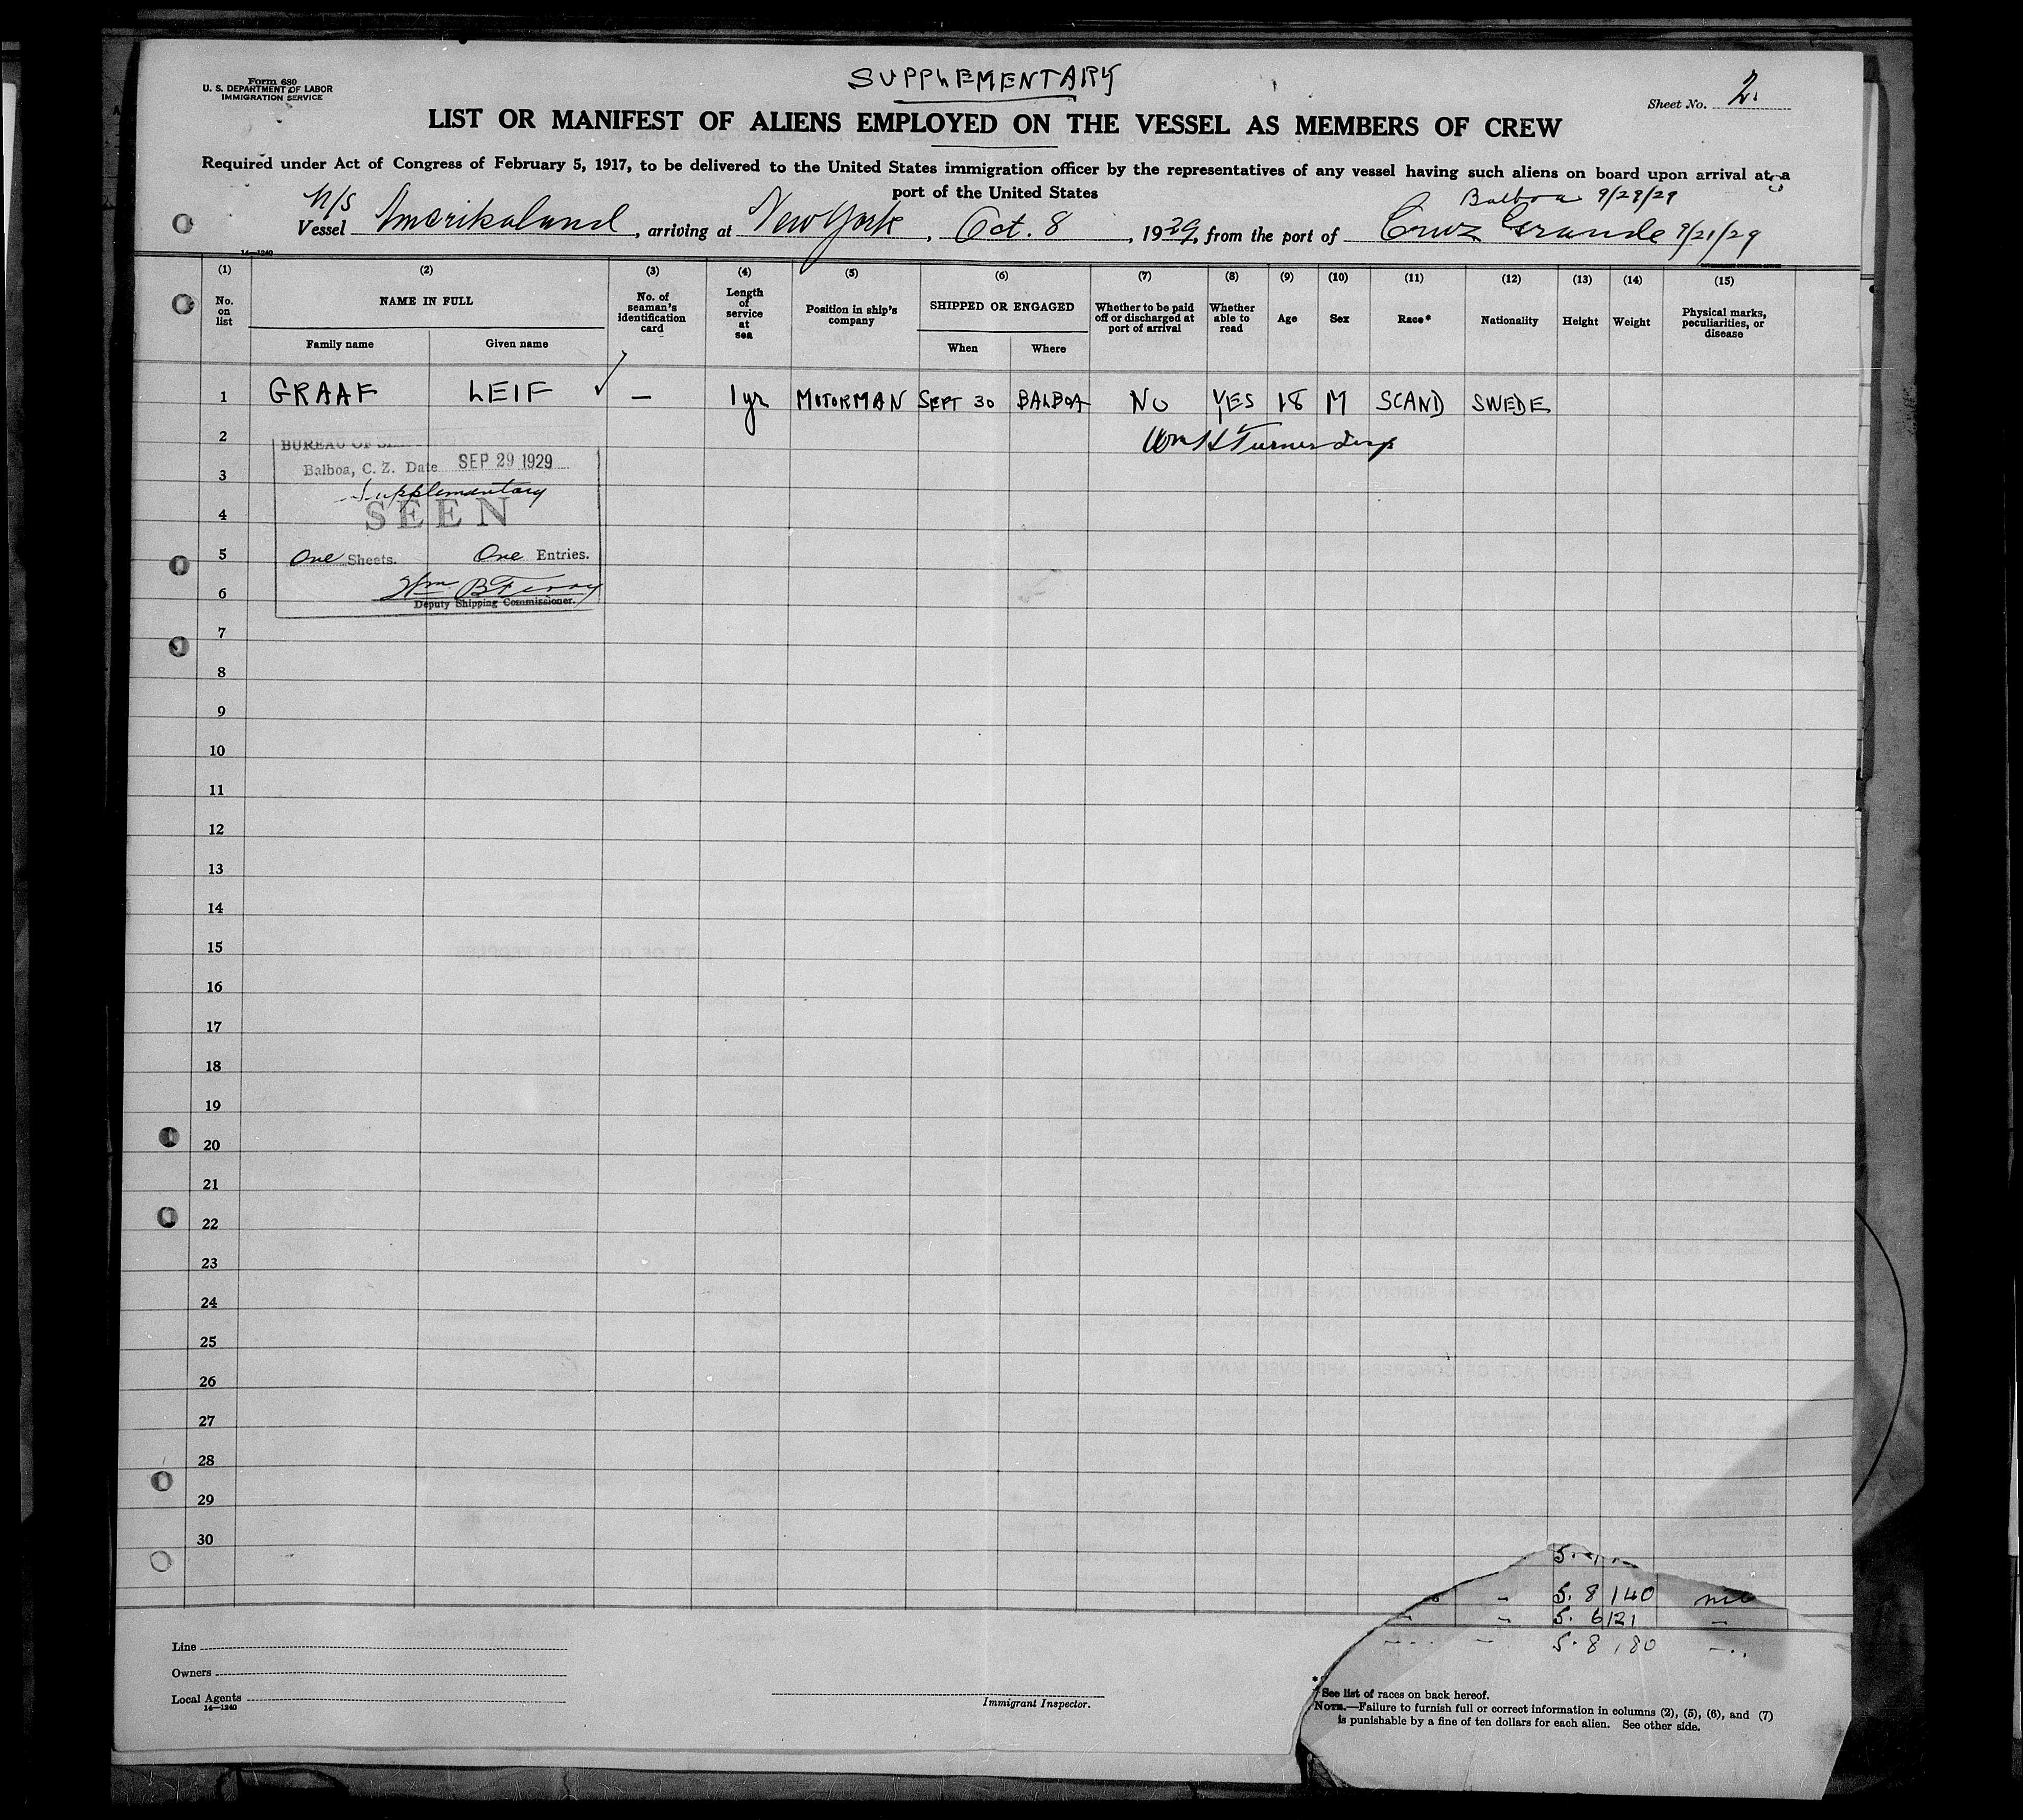 Form 680
U. S. DEPARTMENT OF LABOR
IMMIGRATION SERVICE
SUPPLEMENTARY
Sheet No. 2.
LIST OR MANIFEST OF ALIENS EMPLOYED ON THE VESSEL AS MEMBERS OF CREW
Required under Act of Congress of February 5, 1917, to be delivered to the United States immigration officer by the representatives of any vessel having such aliens on board upon arrival at a
port of the United States
Balboa 9/29/29
M/S
Vessel Amerikaland, arriving at New York, Oct. 8, 1929, from the port of Cruz Grande 9/21/29
14—1240
(1) (2) (3) (4) (5) (6) (7) (8) (9) (10) (11) (12) (13) (14) (15)
No. on list
NAME IN FULL
Family name
Given name
No. of seaman's identification card
Length of service at sea
Position in ship's company
SHIPPED OR ENGAGED
When
Where
Whether to be paid off or discharged at port of arrival
Whether able to read
Age
Sex
Race*
Nationality
Height
Weight
Physical marks, peculiarities, or disease
1 GRAAF LEIF ✓ — 1 yr MOTORMAN SEPT 30 BALBOA NO YES 18 M SCAND SWEDE
2
BUREAU OF
Balboa, C. Z. Date SEP 29 1929
3
Supplementary
4
SEEN
5
One Sheets. One Entries.
6
Wm
Deputy Shipping Commissioner.
7
8
9
10
11
12
13
14
15
16
17
18
19
20
21
22
23
24
25
26
27
28
29
30
5. 8 140
5. 6 121 —
5. 8 180
Line
Owners
Local Agents
14—1240
Immigrant Inspector.
* See list of races on back hereof.
NOTE.—Failure to furnish full or correct information in columns (2), (5), (6), and (7)
is punishable by a fine of ten dollars for each alien. See other side.